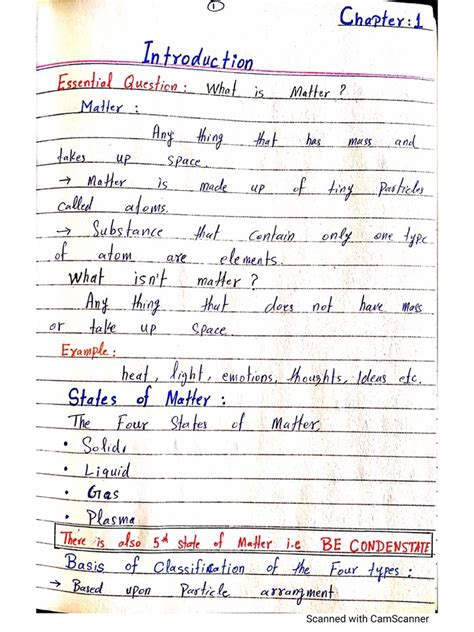 1
Chapter:1
Introduction
Essential Question: What is Matter?
Matter:
Any thing that has mass and
takes up space.
→ Matter is made up of tiny Particles
called atoms.
→ Substance that contain only one type
of atom are elements.
What isn't matter?
Any thing that does not have mass
or take up space
Example:
heat, light, emotions, thoughts, Ideas etc.
States of Matter:
The Four States of Matter,
• Solid,
• Liquid
• Gas
• Plasma
There is also 5th state of Matter i.e BE CONDENSTATE
Basis of Classification of the Four types:
→ Based upon Particle arrangment
Scanned with CamScanner